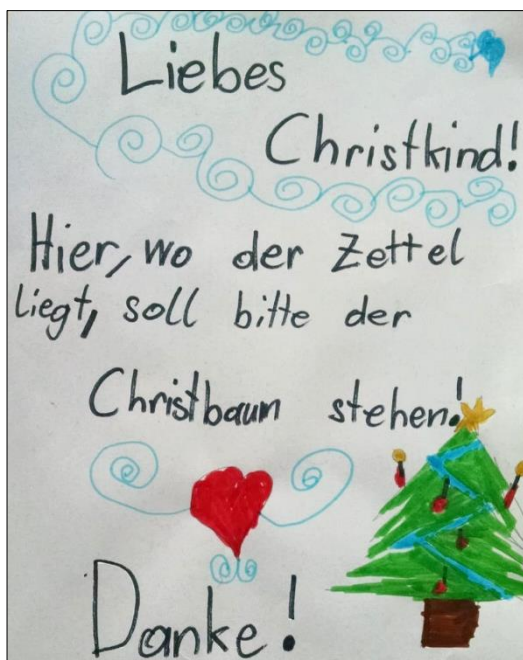 Liebes
Christkind!
Hier, wo der Zettel
liegt, soll bitte der
Christbaum stehen!
Danke!